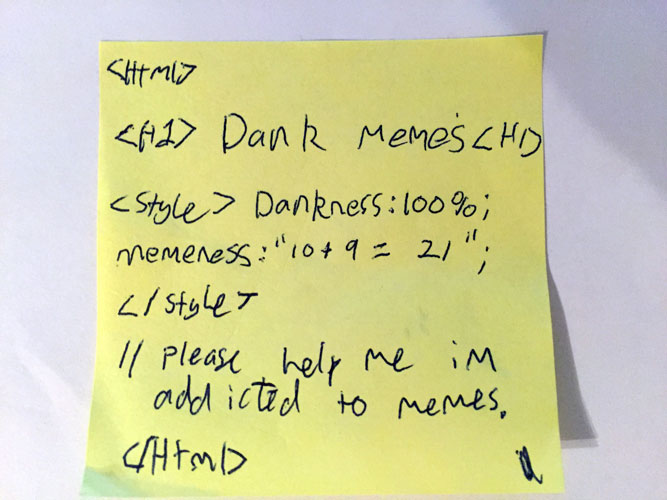 <Html>
<H1> Dank Memes <H1>
<style> Dankness:100%;
memeness:"10+9 = 21";
</style>
// please help me im
addicted to memes.
</Html>